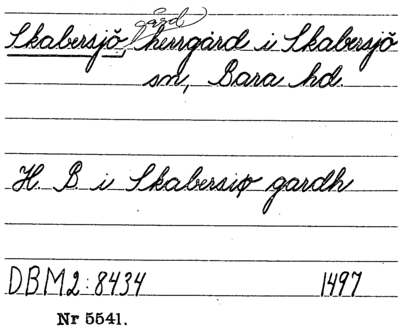 gård
Skabersjö, herrgård i Skabersjö
sn, Bara hd.
H. B i Skabersiø gardh
DBM2:8434 1497
Nr 5541.